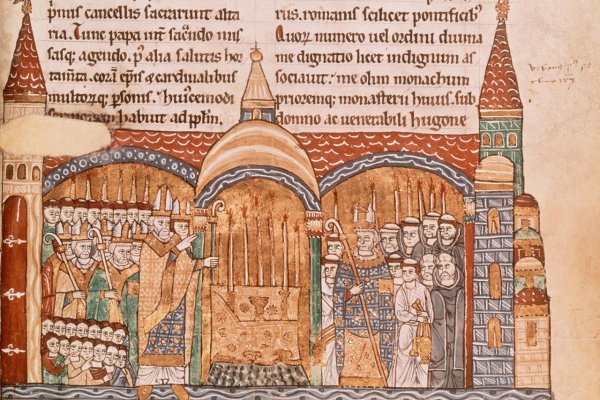 pmis cancellis sacrarunt alta
ria. Tunc papa int sacndo mis
sasq; agendo. p̄ alia salutis hor
tam̄ta. corā ep̄is & cardinalibus
multorq; p̄sonis. huiꝰcemodi
habuit ad pp̄lm.
rus. romanis scilicet pontificibꝰ
Quorū numero uel ordini diuina
me dignatio licet indignum as
sociauit. me olim monachum
prioremq; monasterii huius. sub
domno ac uenerabili hugone